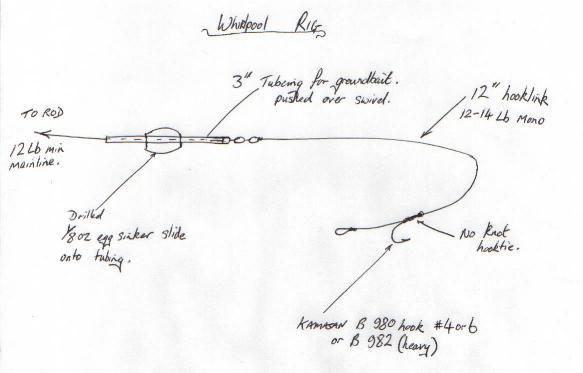 Whirlpool Rig
3" Tubeing for groundbait.
pushed over swivel.
12" hooklink
12-14 Lb Mono
TO ROD
12 Lb min
mainline.
Drilled
1/8 oz egg sinker slide
onto tubing.
No Knot
hooktie.
KAMASAN B 980 hook #4 or 6
or B 982 (heavy)